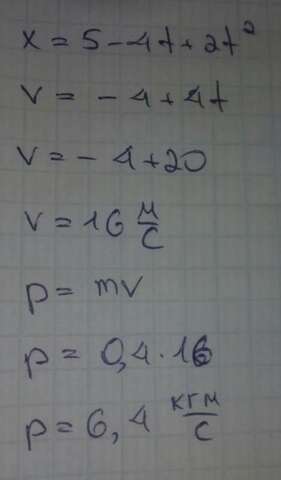 x = 5 - 4t + 2t²
v = - 4 + 4t
v = - 4 + 20
v = 16 м/с
p = mv
p = 0,4 · 16
p = 6,4 кгм/с